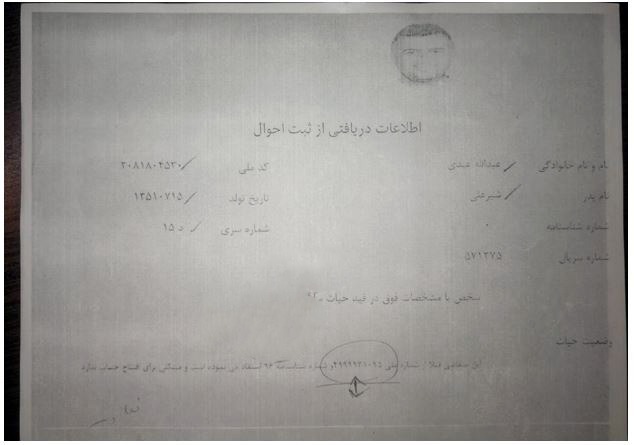 اطلاعات دریافتی از ثبت احوال
نام و نام خانوادگی عبدالله عبدی کد ملی ۲۰۸۱۸۰۴۵۳۰
نام پدر شیرعلی تاریخ تولد ۱۳۵۱۰۷۱۵
شماره شناسنامه ۰ شماره سری د ۱۵
شماره سریال ۵۷۱۲۷۵
شخص با مشخصات فوق در قید حیات
وضعیت حیات
این متقاضی قبلا از شماره ملی ۲۹۹۹۹۳۱۰۹۵ و شماره شناسنامه ۹۶ استفاده می نموده است و مشکلی برای افتتاح حساب ندارد